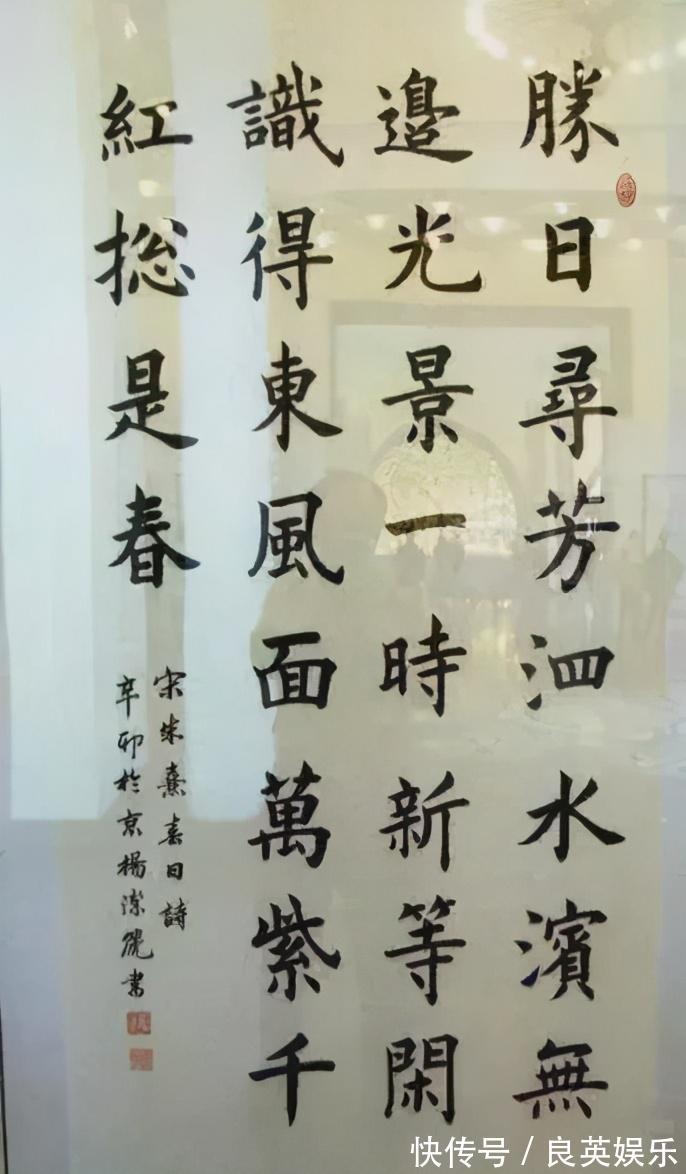 勝日尋芳泗水濱無
邊光景一時新等閑
識得東風面萬紫千
紅捴是春
宋朱熹春日詩
辛卯於京楊潔篪書
快传号/良英娱乐